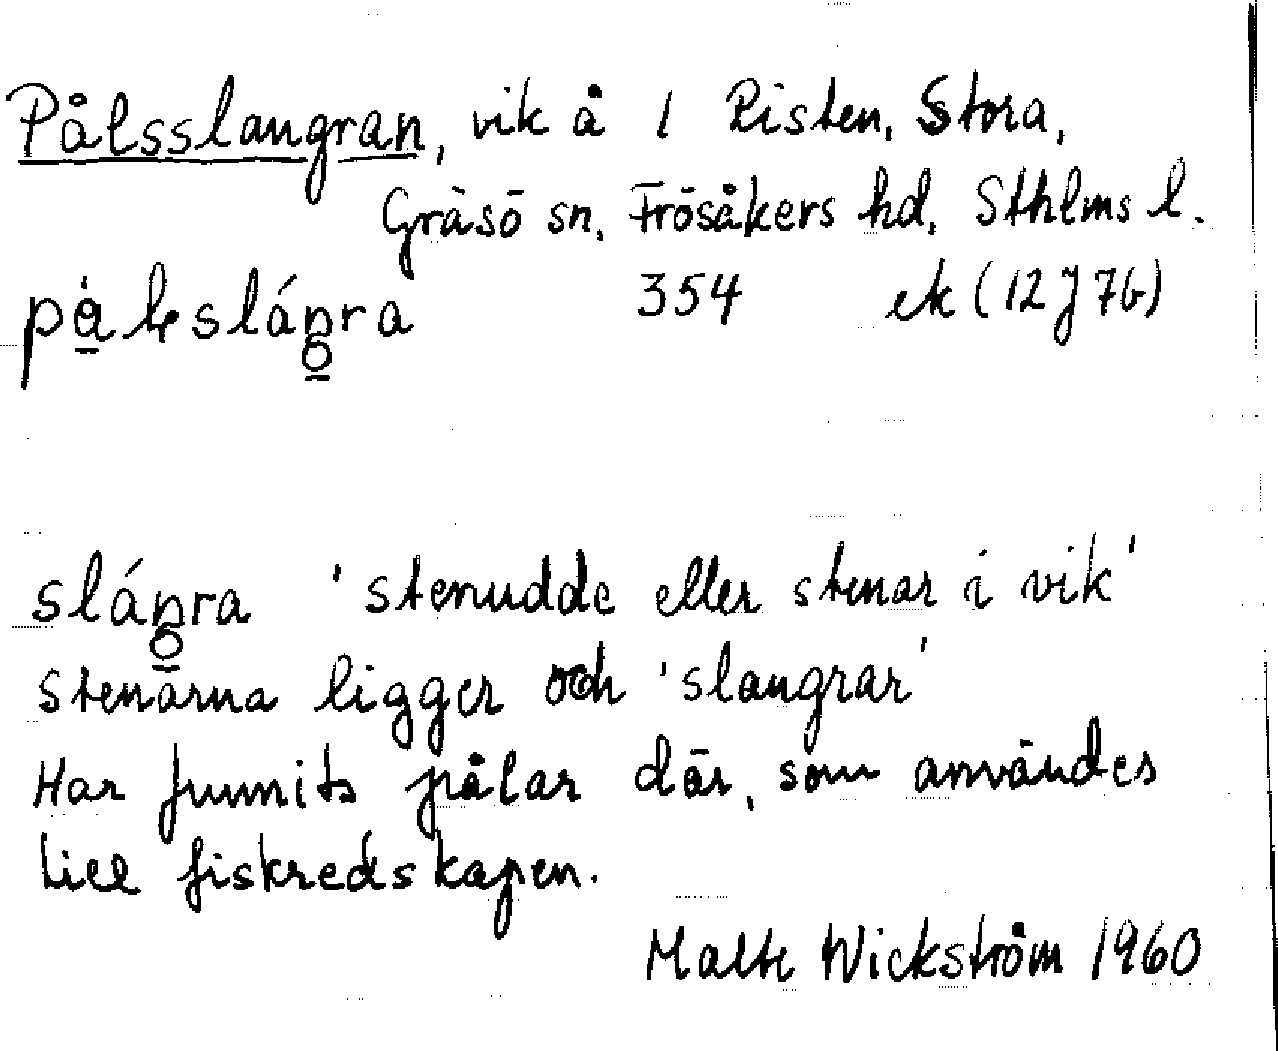 Pålsslangran, vik å 1 Risten, Stora,
Gräsö sn, Frösåkers hd, Sthlms l.
354 ek (12J7b)
sláŋra 'stenudde eller stenar i vik'
stenarna ligger och 'slangrar'
Har funnits pålar där, som användes
till fiskredskapen.
Malte Wickström 1960